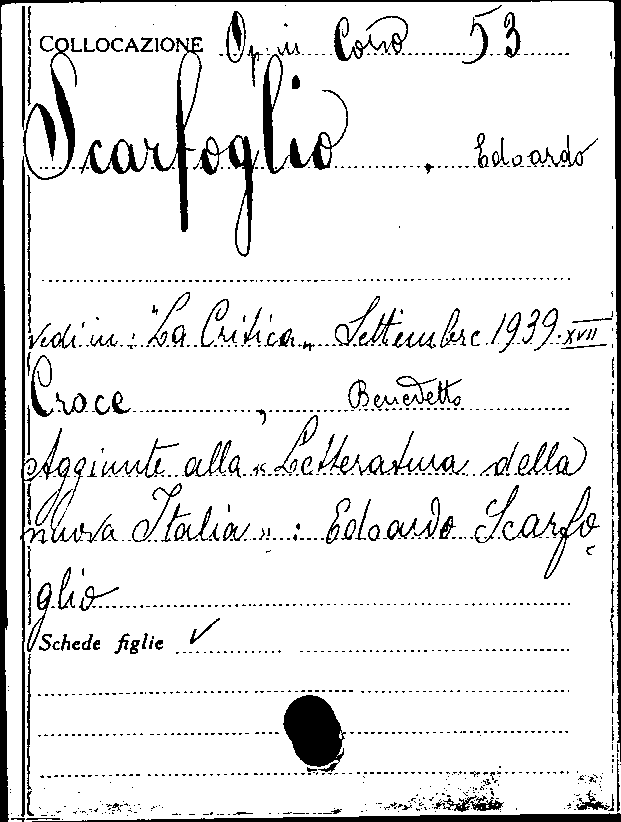 COLLOCAZIONE Op. in Corso 53
Scarfoglio, Edoardo
vedi in: "La Critica„ Settembre 1939. XVII
Croce, Benedetto
Aggiunte alla «Letteratura della
nuova Italia»: Edoardo Scarfo
glio
Schede figlie ✓